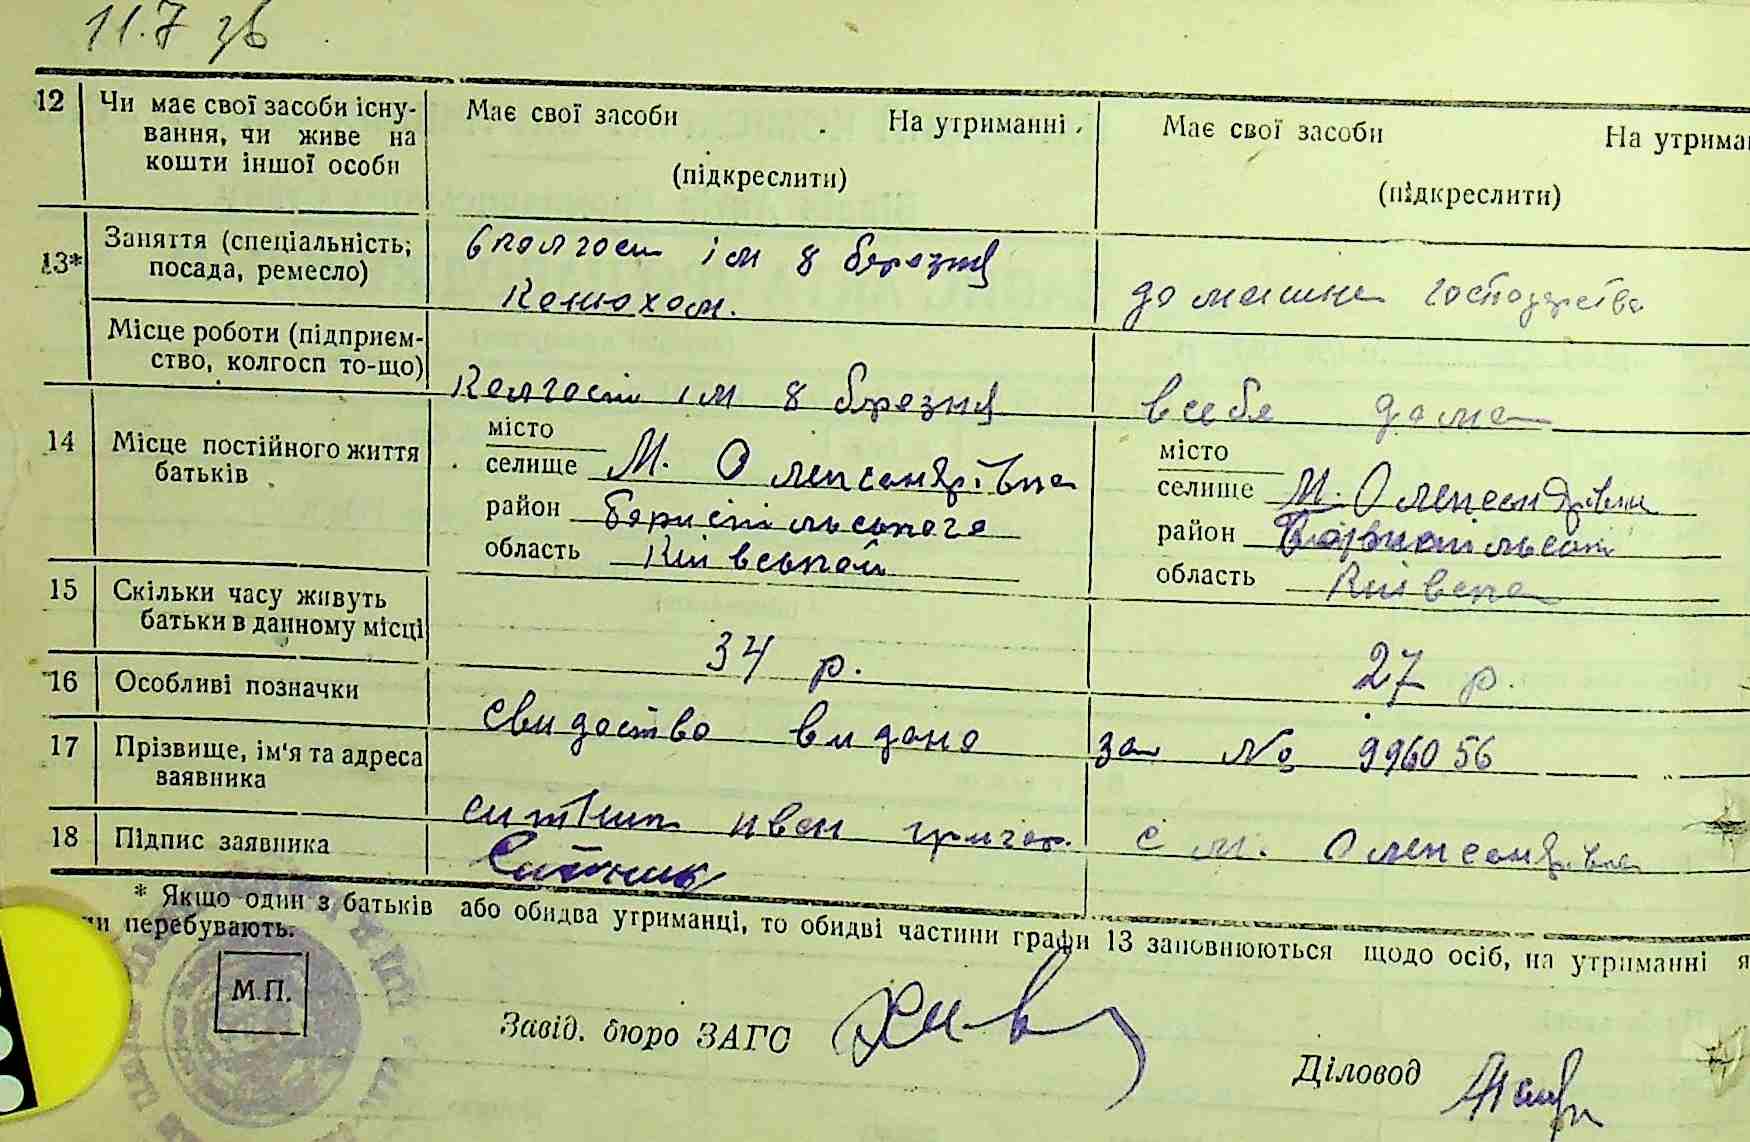 11.7 зв
12 Чи має свої засоби існу- Має свої засоби На утриманні Має свої засоби На утрима
вання, чи живе на
кошти іншої особи (підкреслити) (підкреслити)
13* Заняття (спеціальність, вколгосп ім 8 березня
посада, ремесло) Конюхом. домашне господарство
Місце роботи (підприєм-
ство, колгосп то-що) Колгосп ім 8 березня в себе дома
14 Місце постійного життя місто місто
батьків селище М. Олександрівка селище М. Олександрівка
район Бориспільского район Бориспільский
область Київськой область Київска
15 Скільки часу живуть
батьки в данному місці 34 р. 27 р.
16 Особливі позначки свидоство видано за № 996056
17 Прізвище, ім'я та адреса
заявника ситник иван с м. Олександрівка
18 Підпис заявника Ситник
* Якщо один з батьків або обидва утриманці, то обидві частини графи 13 заповнюються щодо осіб, на утриманні я
ни перебувають.
М.П.
Завід. бюро ЗАГС
Діловод